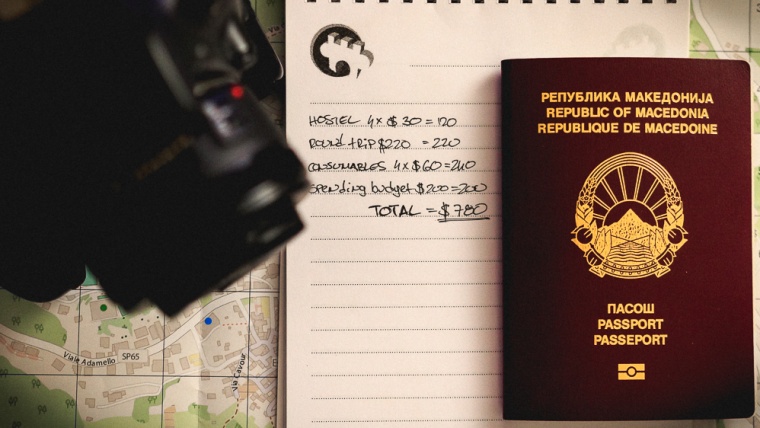 HOSTEL 4x $30 = 120
ROUND TRIP $220 = 220
CONSUMABLES 4x $60 = 240
Spending budget $200 = 200
TOTAL = $780
РЕПУБЛИКА МАКЕДОНИЈА
REPUBLIC OF MACEDONIA
REPUBLIQUE DE MACEDOINE
ПАСОШ
PASSPORT
PASSEPORT
Viale Adamello SP65
Via Cavour